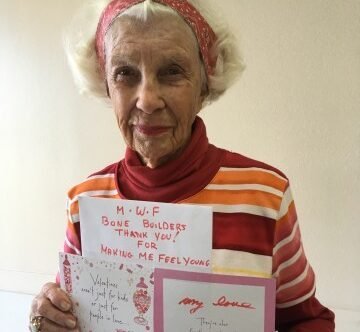 M·W·F
BONE BUILDERS
THANK YOU!
FOR
MAKING ME FEEL YOUNG
Valentines
aren't just for kids
or just for
people in love
my love
They're also